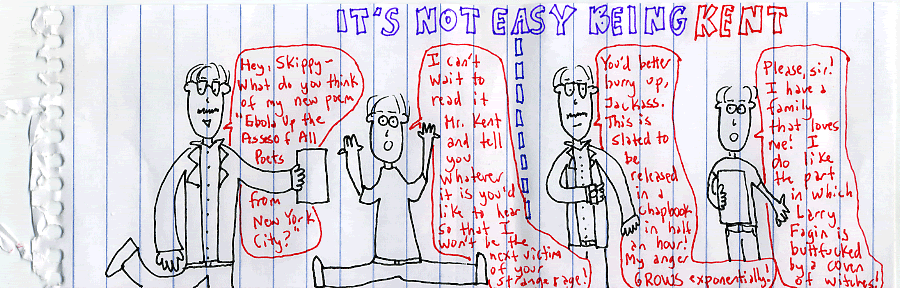 IT'S NOT EASY BEING KENT
Hey, Skippy-
What do you think
of my new poem
"Ebola Up the
Asses of All
Poets
from
New York
City?"
I can't
wait to
read it
Mr. Kent
and tell
you
whatever
it is you'd
like to hear
so that I
won't be the
next victim
of your
strange rage!
You'd better
hurry up,
Jackass.
This is
slated to
be
released
in a
chapbook
in half
an hour!
My anger
GROWS exponentially!
Please, sir!
I have a
family
that loves
me! I
do like
the part
in which
Larry
Fagin is
buttfucked
by a coven
of witches!